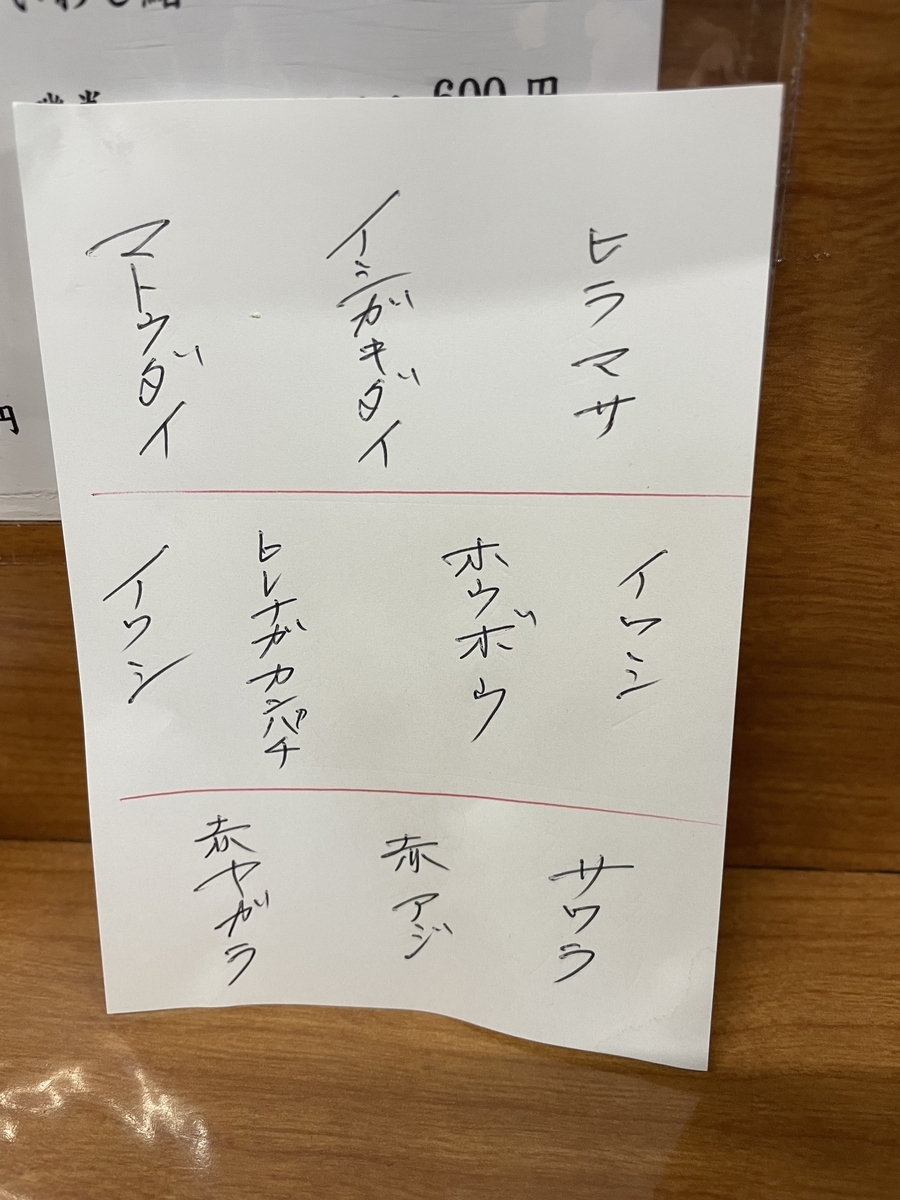 600円
円
ヒラマサ
イシガキダイ
マトウダイ
イワシ
ホウボウ
ヒレナガカンパチ
イワシ
サワラ
赤アジ
赤ヤガラ